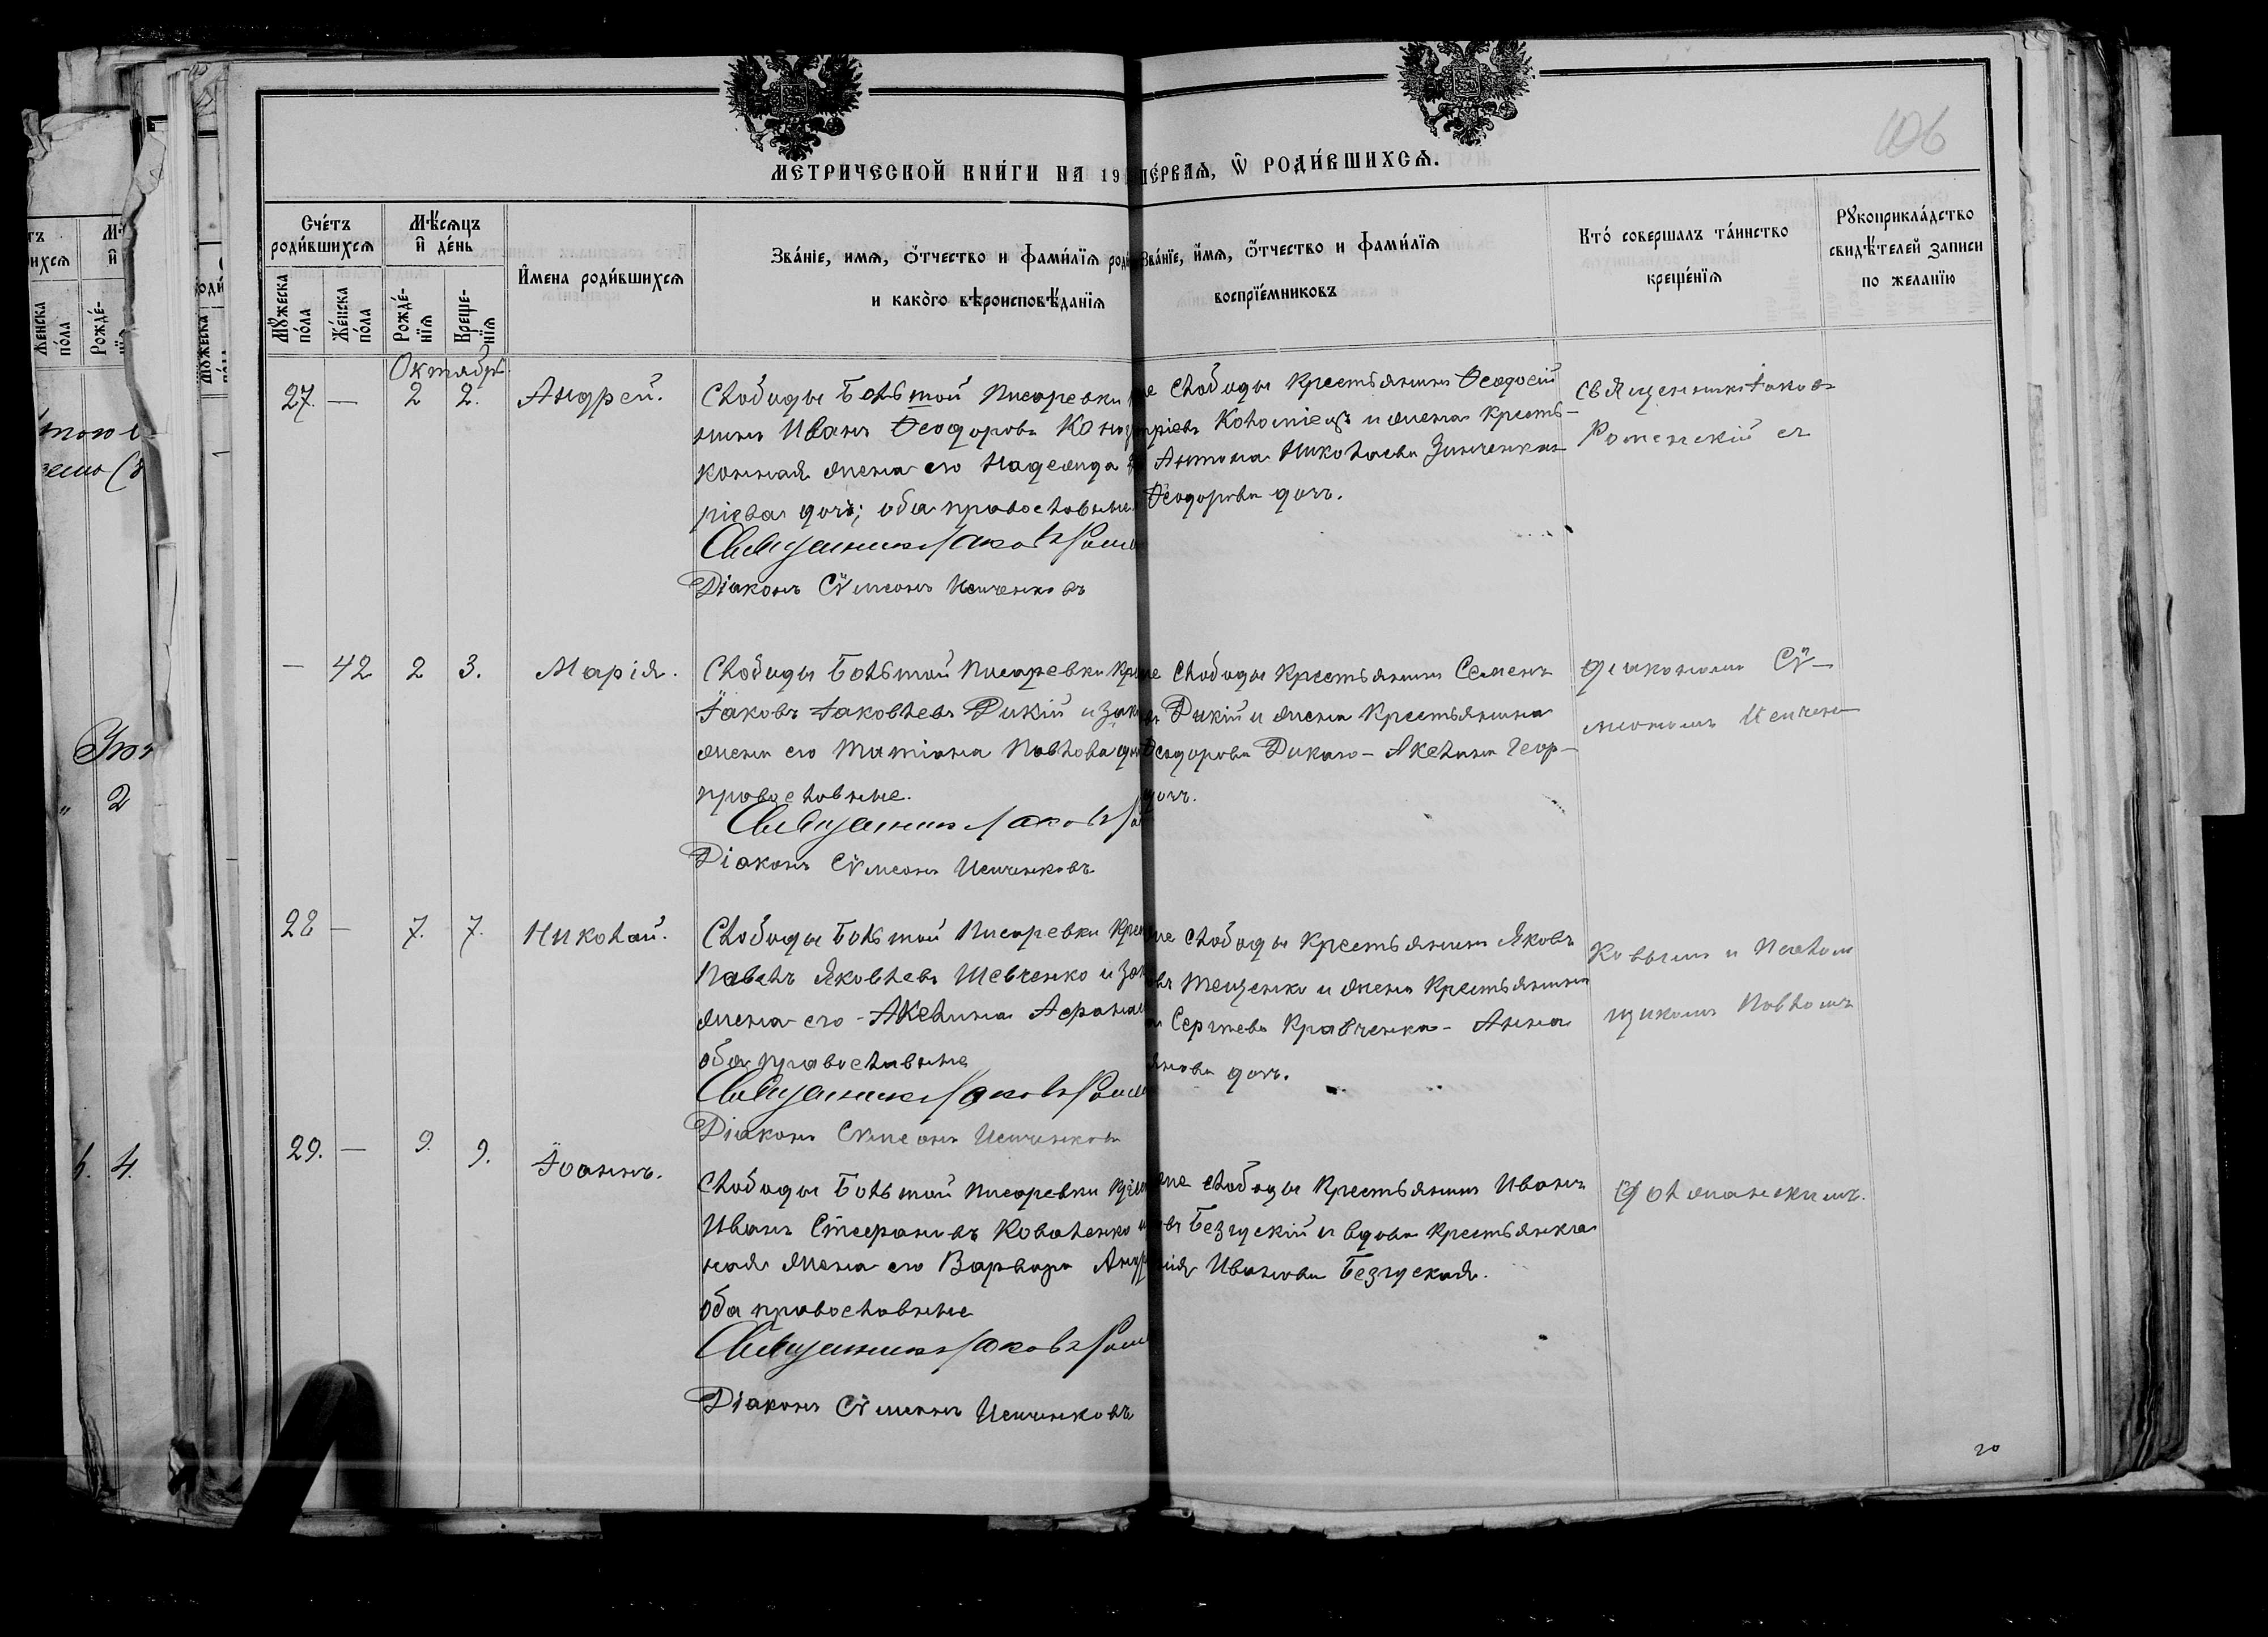 106
МЕТРИЧЕСКОЙ КНИ́ГИ НА 19
ПЕ́РВАѦ, Ѡ҆ РОДИ́ВШИХСѦ.
Сче́тъ роди́вшихсѧ
Мѣ́сѧцъ и҆ де́нь
Мꙋ́жеска по́ла
Же́нска по́ла
Рожде́нїѧ
Креще́нїѧ
И҆мена роди́вшихсѧ
Зва́нїе, имѧ, ѻ҆́тчество и фами́лїѧ роди
и како́го вѣроисповѣ́данїѧ
Зва́нїе, и҆́мѧ, ѻ҆́тчество и фами́лїѧ
воспрїе́мниковъ
Кто́ соверша́лъ та́инство
креще́нїѧ
Рꙋкоприкла́дство
свидѣ́телей записи
по жела́нїю
Октябрь
27. — 2 2. Андрей.
Слободы Большой Писаревки
нинъ Иванъ Ѳеодоровъ
конная жена его Надежда
ріева дочь; оба православные
Священникъ Іаковъ
Діаконъ Сѵмеонъ Исиченковъ
же слободы крестьянинъ Ѳеодосій
тріевъ Коломіецъ и жена кресть-
Антона Николаева Зинченка
Ѳеодорова дочь.
Священникъ Іаковъ
Роменскій съ
— 42 2 3. Марія.
Слободы Большой Писаревки кре
Іаковъ Іаковлевъ Дикій и зак
жена его Татіана Павлова до
православные.
Священникъ Іаковъ
Діаконъ Сѵмеонъ Исиченковъ
же слободы крестьянинъ Семенъ
въ Дикій и жена крестьянина
Ѳеодорова Дикаго – Акелина Геор-
дочь.
діакономъ Сѵ-
меономъ Исичен-
28 — 7. 7. Николай.
Слободы Большой Писаревки кре
Павелъ Яковлевъ Шевченко и зак
жена его – Акелина Афанась
оба православные
Священникъ Іаковъ
Діаконъ Сѵмеонъ Исиченковъ
же слободы крестьянинъ Яковъ
овъ Тещенко и жена крестьянина
Сергіева Кравченка – Анна
янова дочь.
ковымъ и Псалом
щикомъ Павломъ
29. — 9. 9. Іоаннъ.
Слободы Большой Писаревки кре
Иванъ Стефановъ Коваленко и
ная жена его Варвара Андр
оба православные
Священникъ Іаковъ
Діаконъ Сѵмеонъ Исиченковъ
же слободы крестьянинъ Иванъ
овъ Безгускій и вдова крестьянка
рія Иванова Безгуская.
Должанскимъ.
20
2
4.